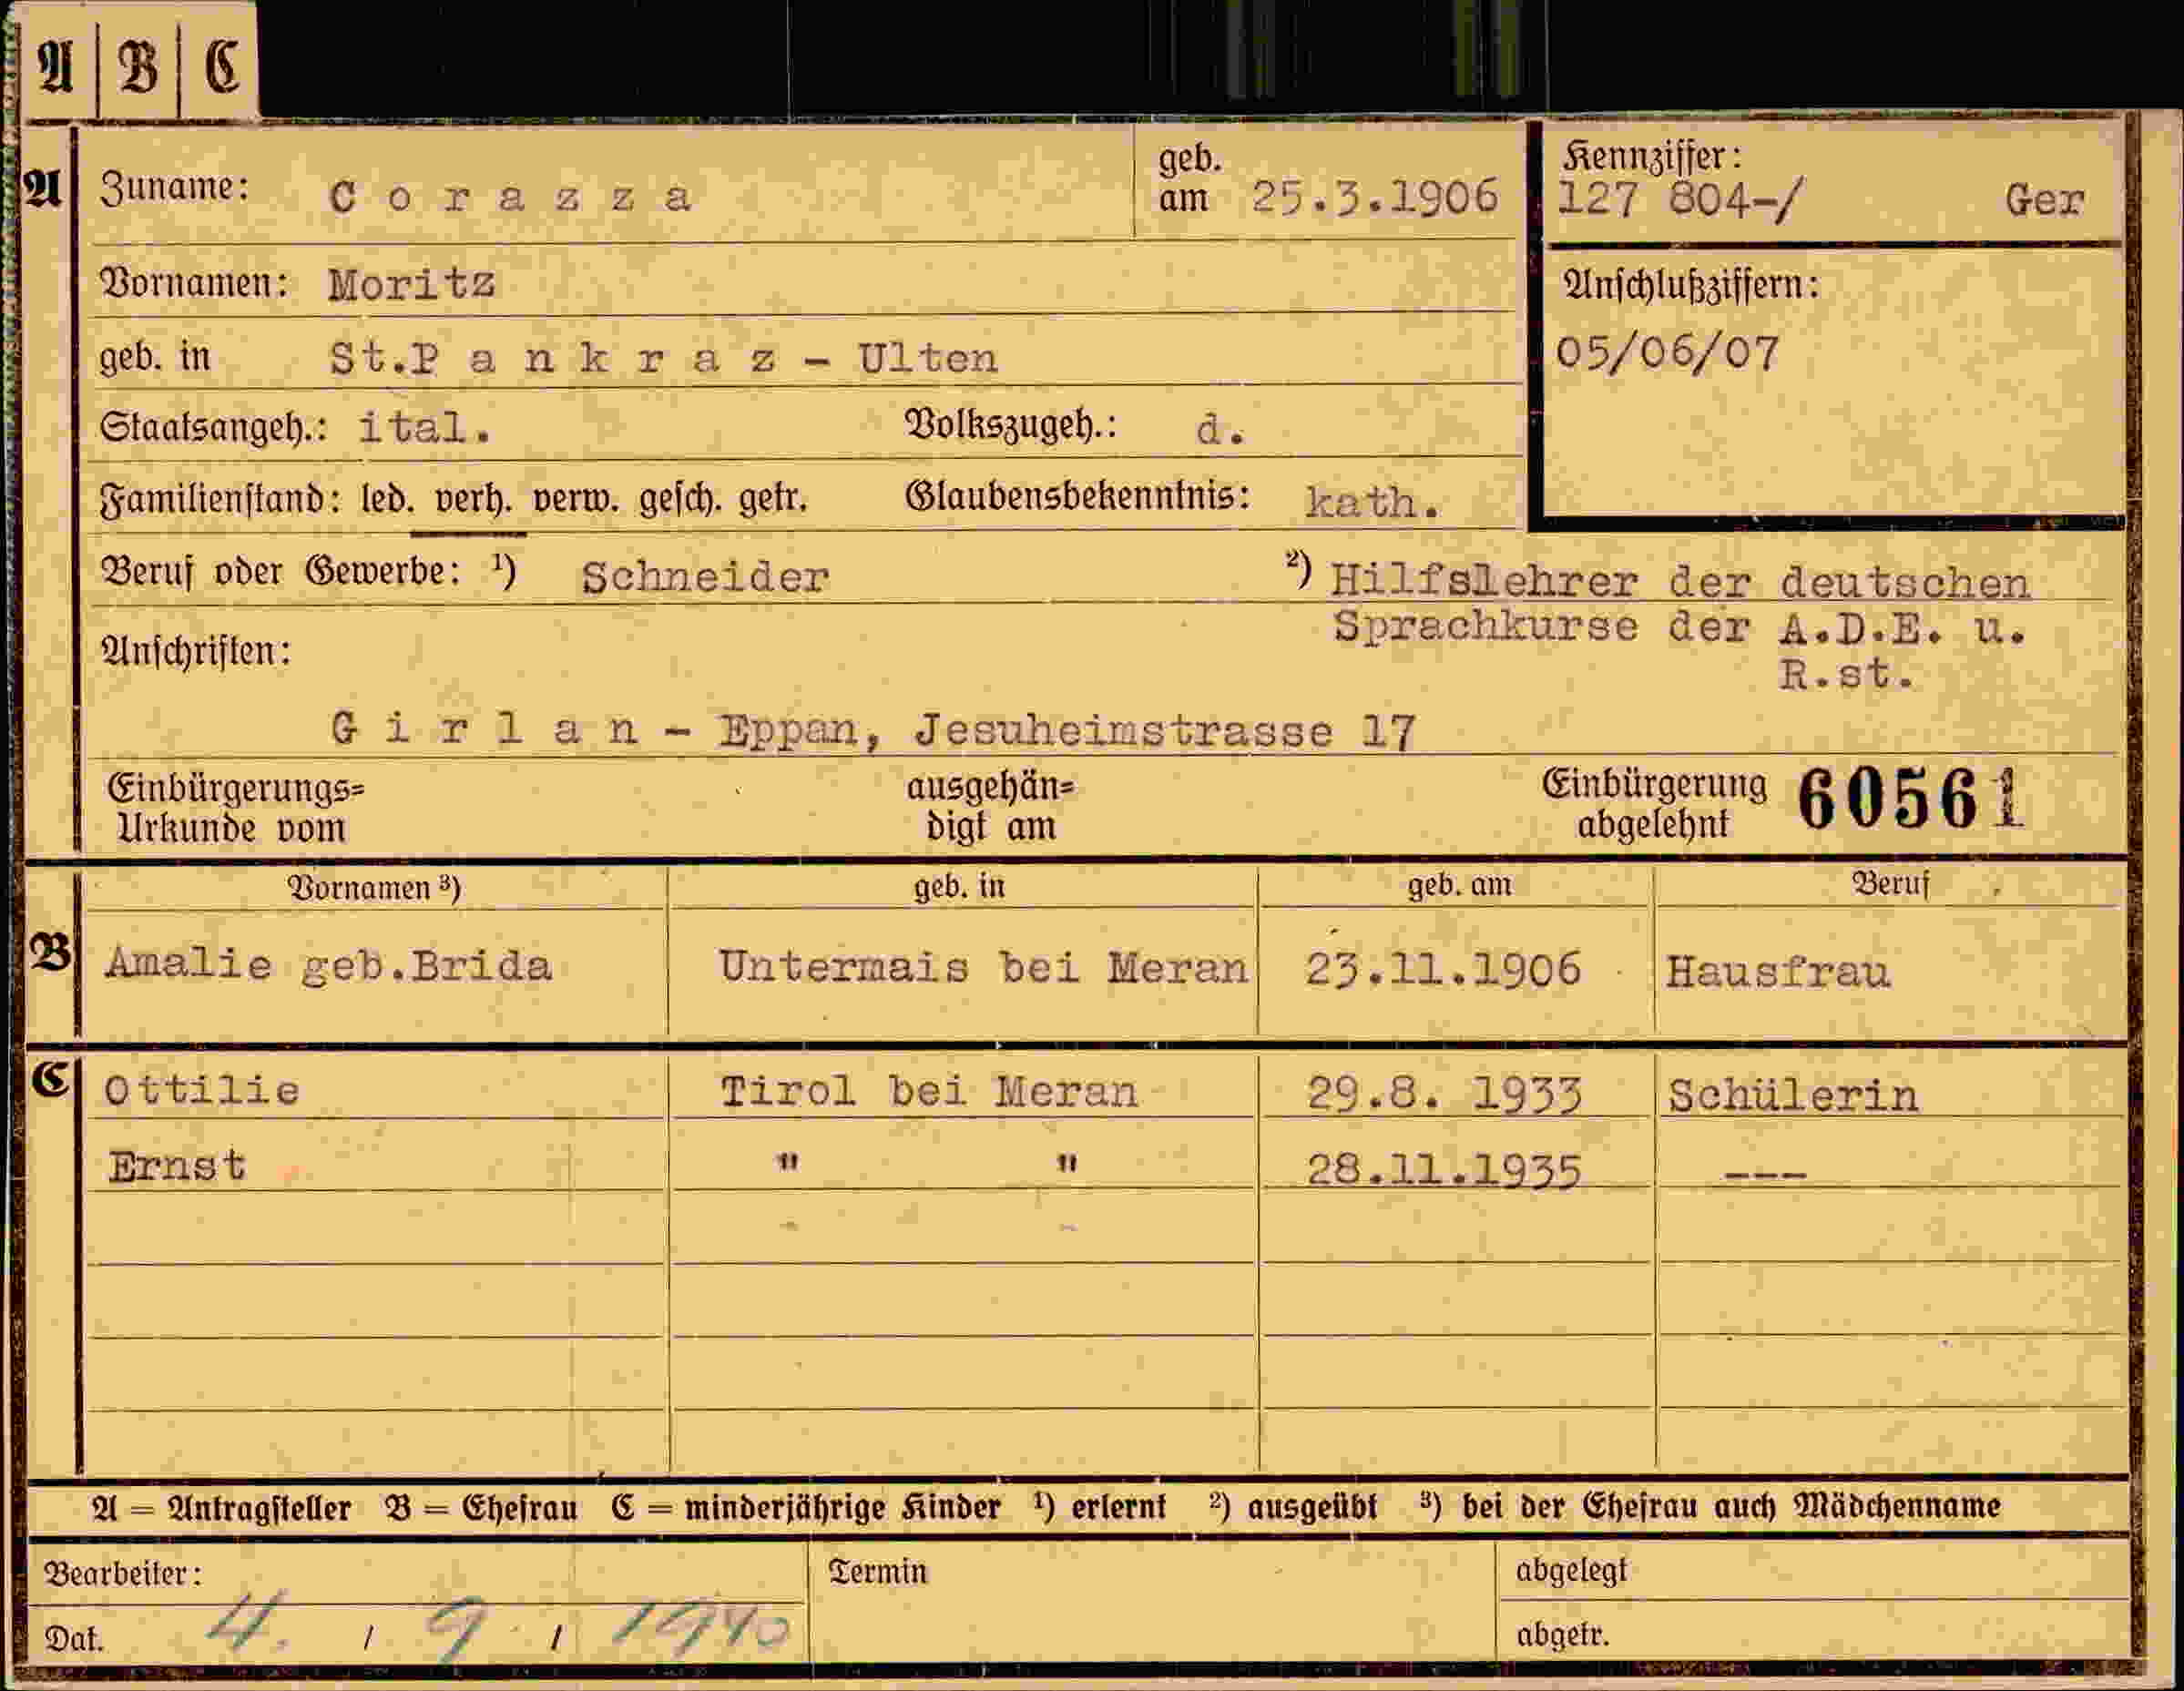 A | B | C
A Zuname: C o r a z z a geb. am 25.3.1906
Kennziffer:
127 804-/ Ger
Vornamen: Moritz
Anschlußziffern:
05/06/07
geb. in St.P a n k r a z - Ulten
Staatsangeh.: ital. Volkszugeh.: d.
Familienstand: led. verh. verw. gesch. getr. Glaubensbekenntnis: kath.
Beruf oder Gewerbe: ¹) Schneider ²) Hilfslehrer der deutschen
Sprachkurse der A.D.E. u.
R.st.
Anschriften:
G i r l a n - Eppan, Jesuheimstrasse 17
Einbürgerungs=
Urkunde vom
ausgehän=
digt am
Einbürgerung
abgelehnt
60561
Vornamen ³) geb. in geb. am Beruf
B Amalie geb.Brida Untermais bei Meran 23.11.1906 Hausfrau
C Ottilie Tirol bei Meran 29.8. 1933 Schülerin
Ernst " " 28.11.1935 ---
A = Antragsteller B = Ehefrau C = minderjährige Kinder ¹) erlernt ²) ausgeübt ³) bei der Ehefrau auch Mädchenname
Bearbeiter: Termin abgelegt
Dat. 4. / 9 / 1940 abgetr.